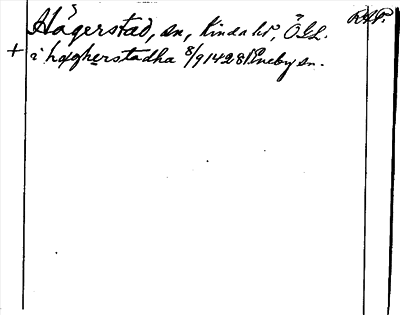 Hågerstad, sn, Kinda hd, ÖGL. RAP.
+ i hægherstadha 8/9 1428 Rineby sn.